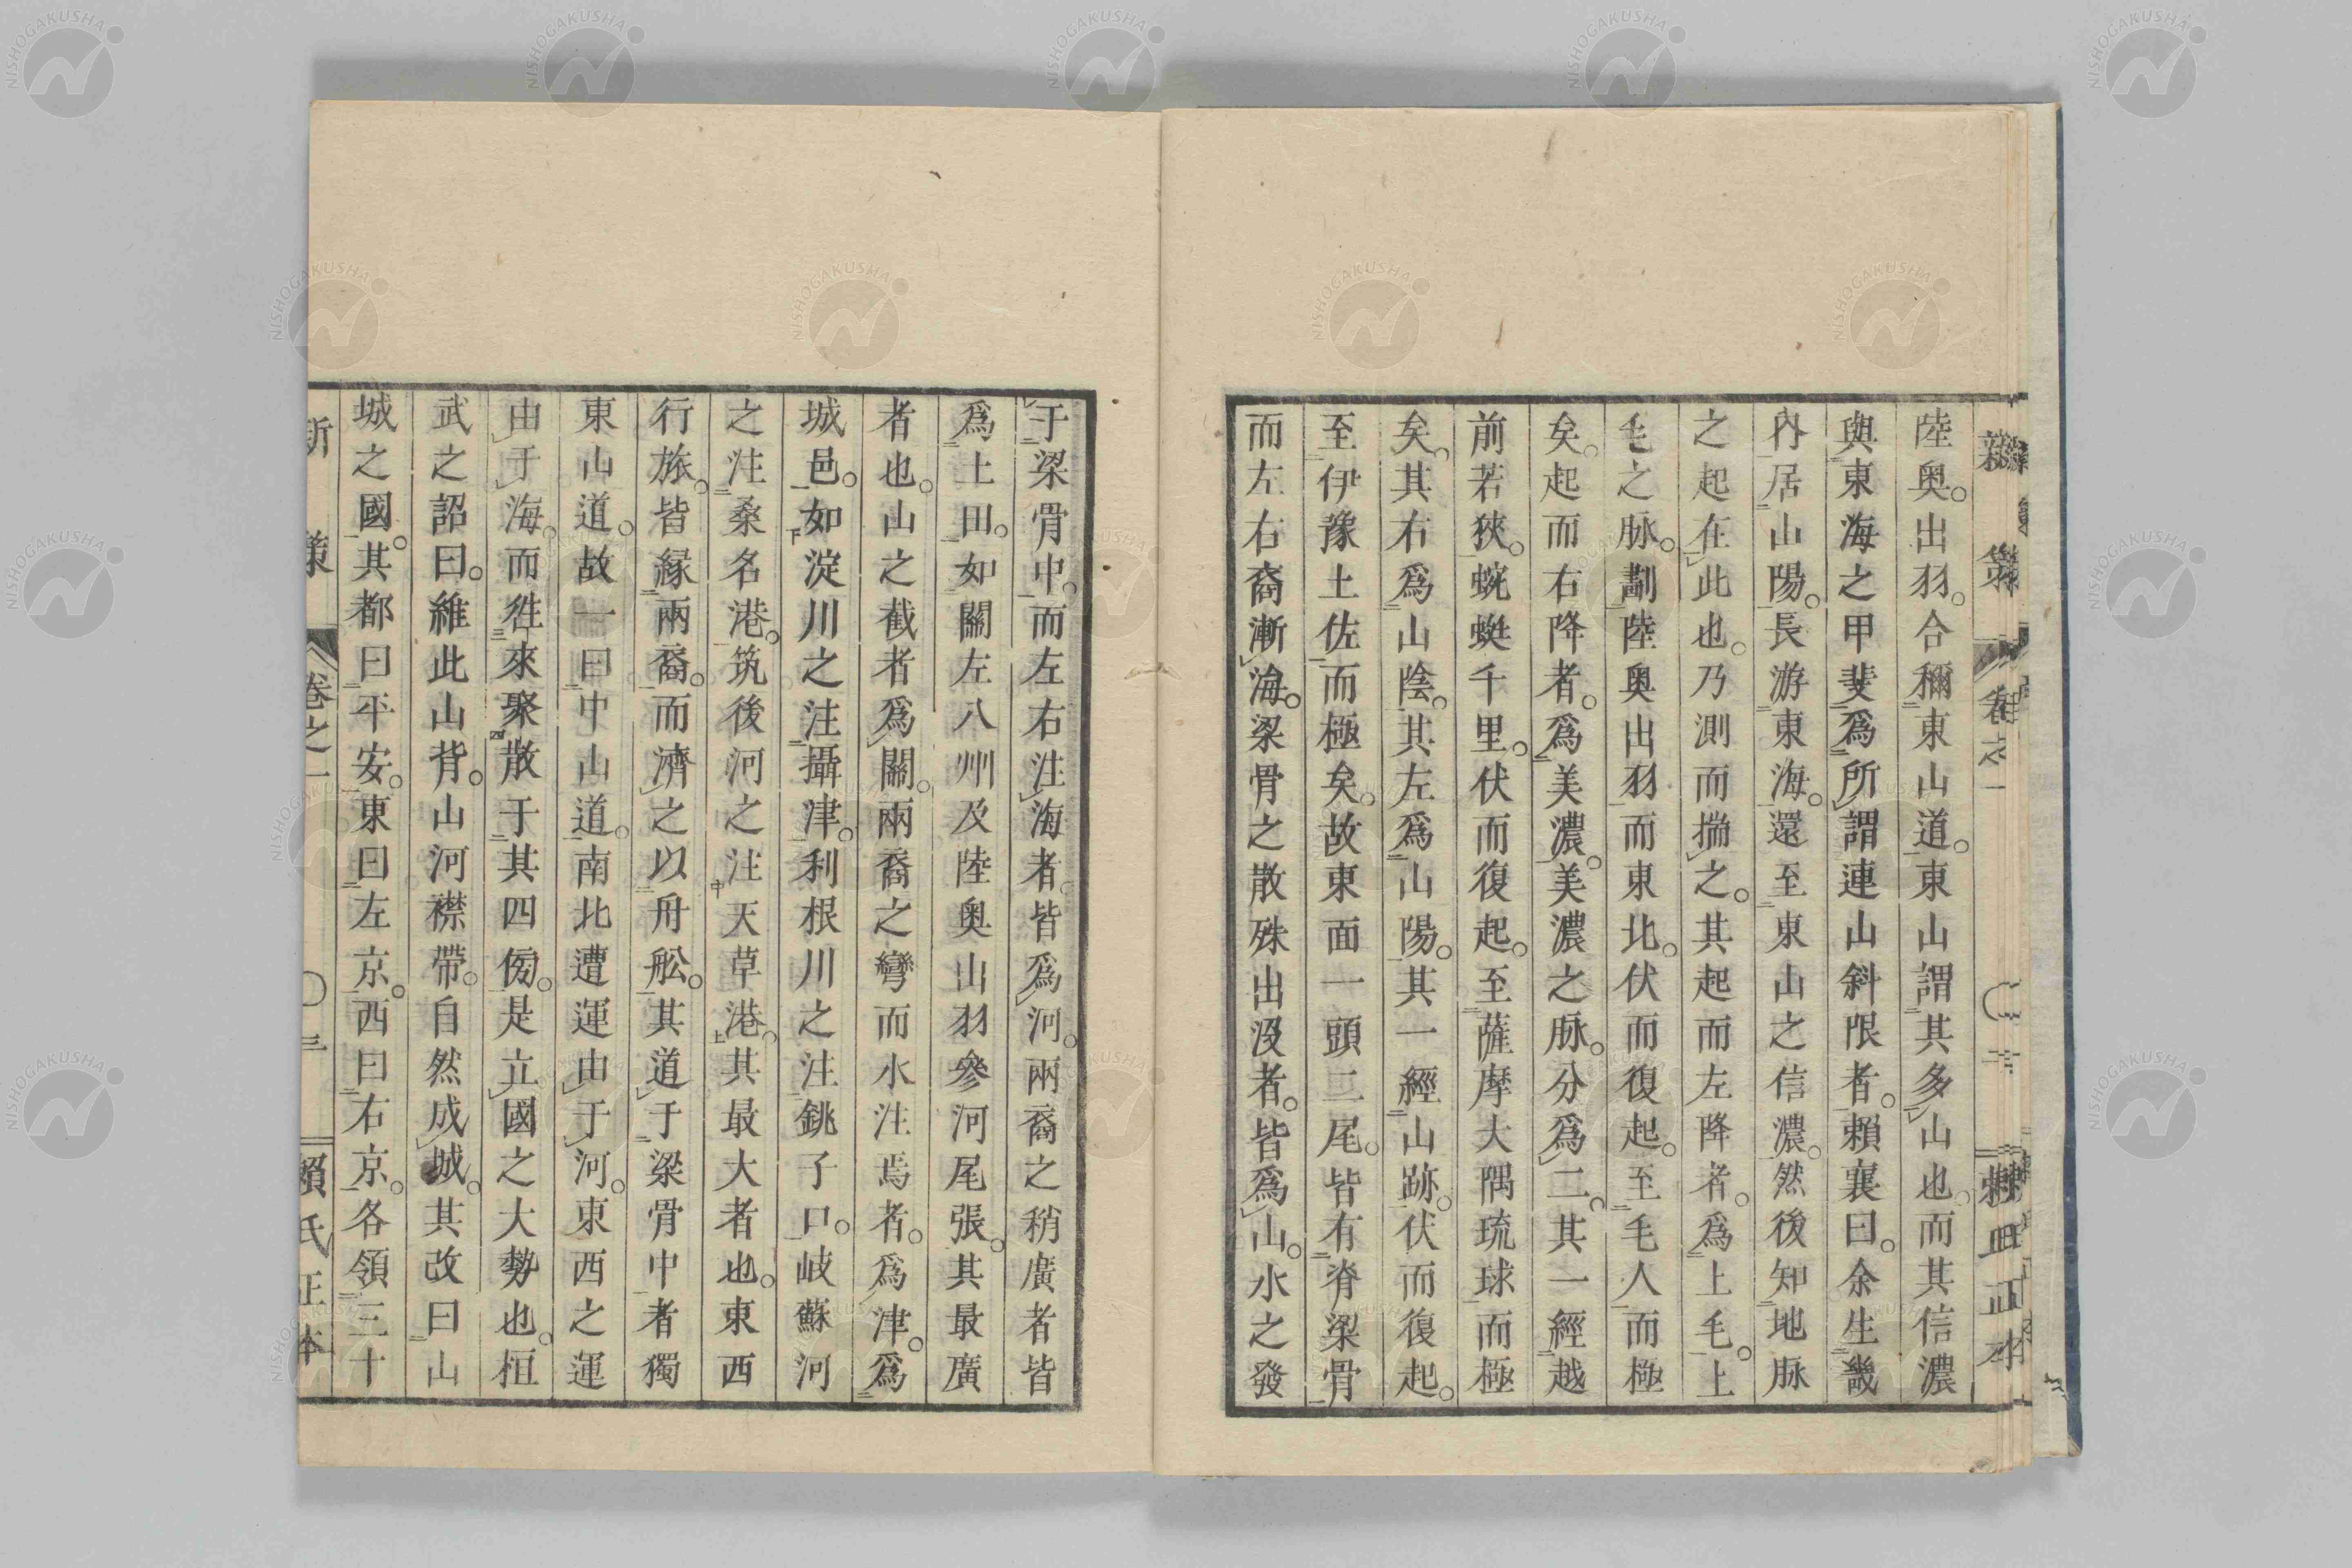 陸奥。出羽。合稱東山道。東山謂其多山也。而其信濃
與東海之甲斐。爲所謂連山斜限者。賴襄曰。余生畿
內。居山陽。長游東海。還至東山之信濃。然後知地脉
之起在此也。乃測而揣之。其起而左降者。爲上毛。上
毛之脉。劃陸奥出羽而東北。伏而復起。至毛人而極
矣。起而右降者。爲美濃。美濃之脉。分爲二。其一經越
前若狹。蜿蜒千里。伏而復起。至薩摩大隅琉球而極
矣。其右爲山陰。其左爲山陽。其一經山跡。伏而復起。
至伊豫土佐而極矣。故東面一頭二尾。皆有脊梁骨
而左右裔漸海。梁骨之散殊出沒者。皆爲山。水之發
于梁骨中。而左右注海者。皆爲河。兩裔之稍廣者皆
爲土田。如關左八州及陸奥出羽參河尾張。其最廣
者也。山之截者爲關。兩裔之彎而水注焉者。爲津。爲
城邑。如淀川之注攝津。利根川之注銚子口。岐蘇河
之注桑名港。筑後河之注天草港。其最大者也。東西
行旅。皆緣兩裔。而濟之以舟舩。其道于梁骨中者獨
東山道。故一曰中山道。南北遭運由于河。東西之運
由于海。而徃來聚散于其四傍。是立國之大勢也。桓
武之詔曰。維此山背。山河襟帶。自然成城。其改曰山
城之國。其都曰平安。東曰左京。西曰右京。各領三十
新策
卷之一
○二
賴氏正本